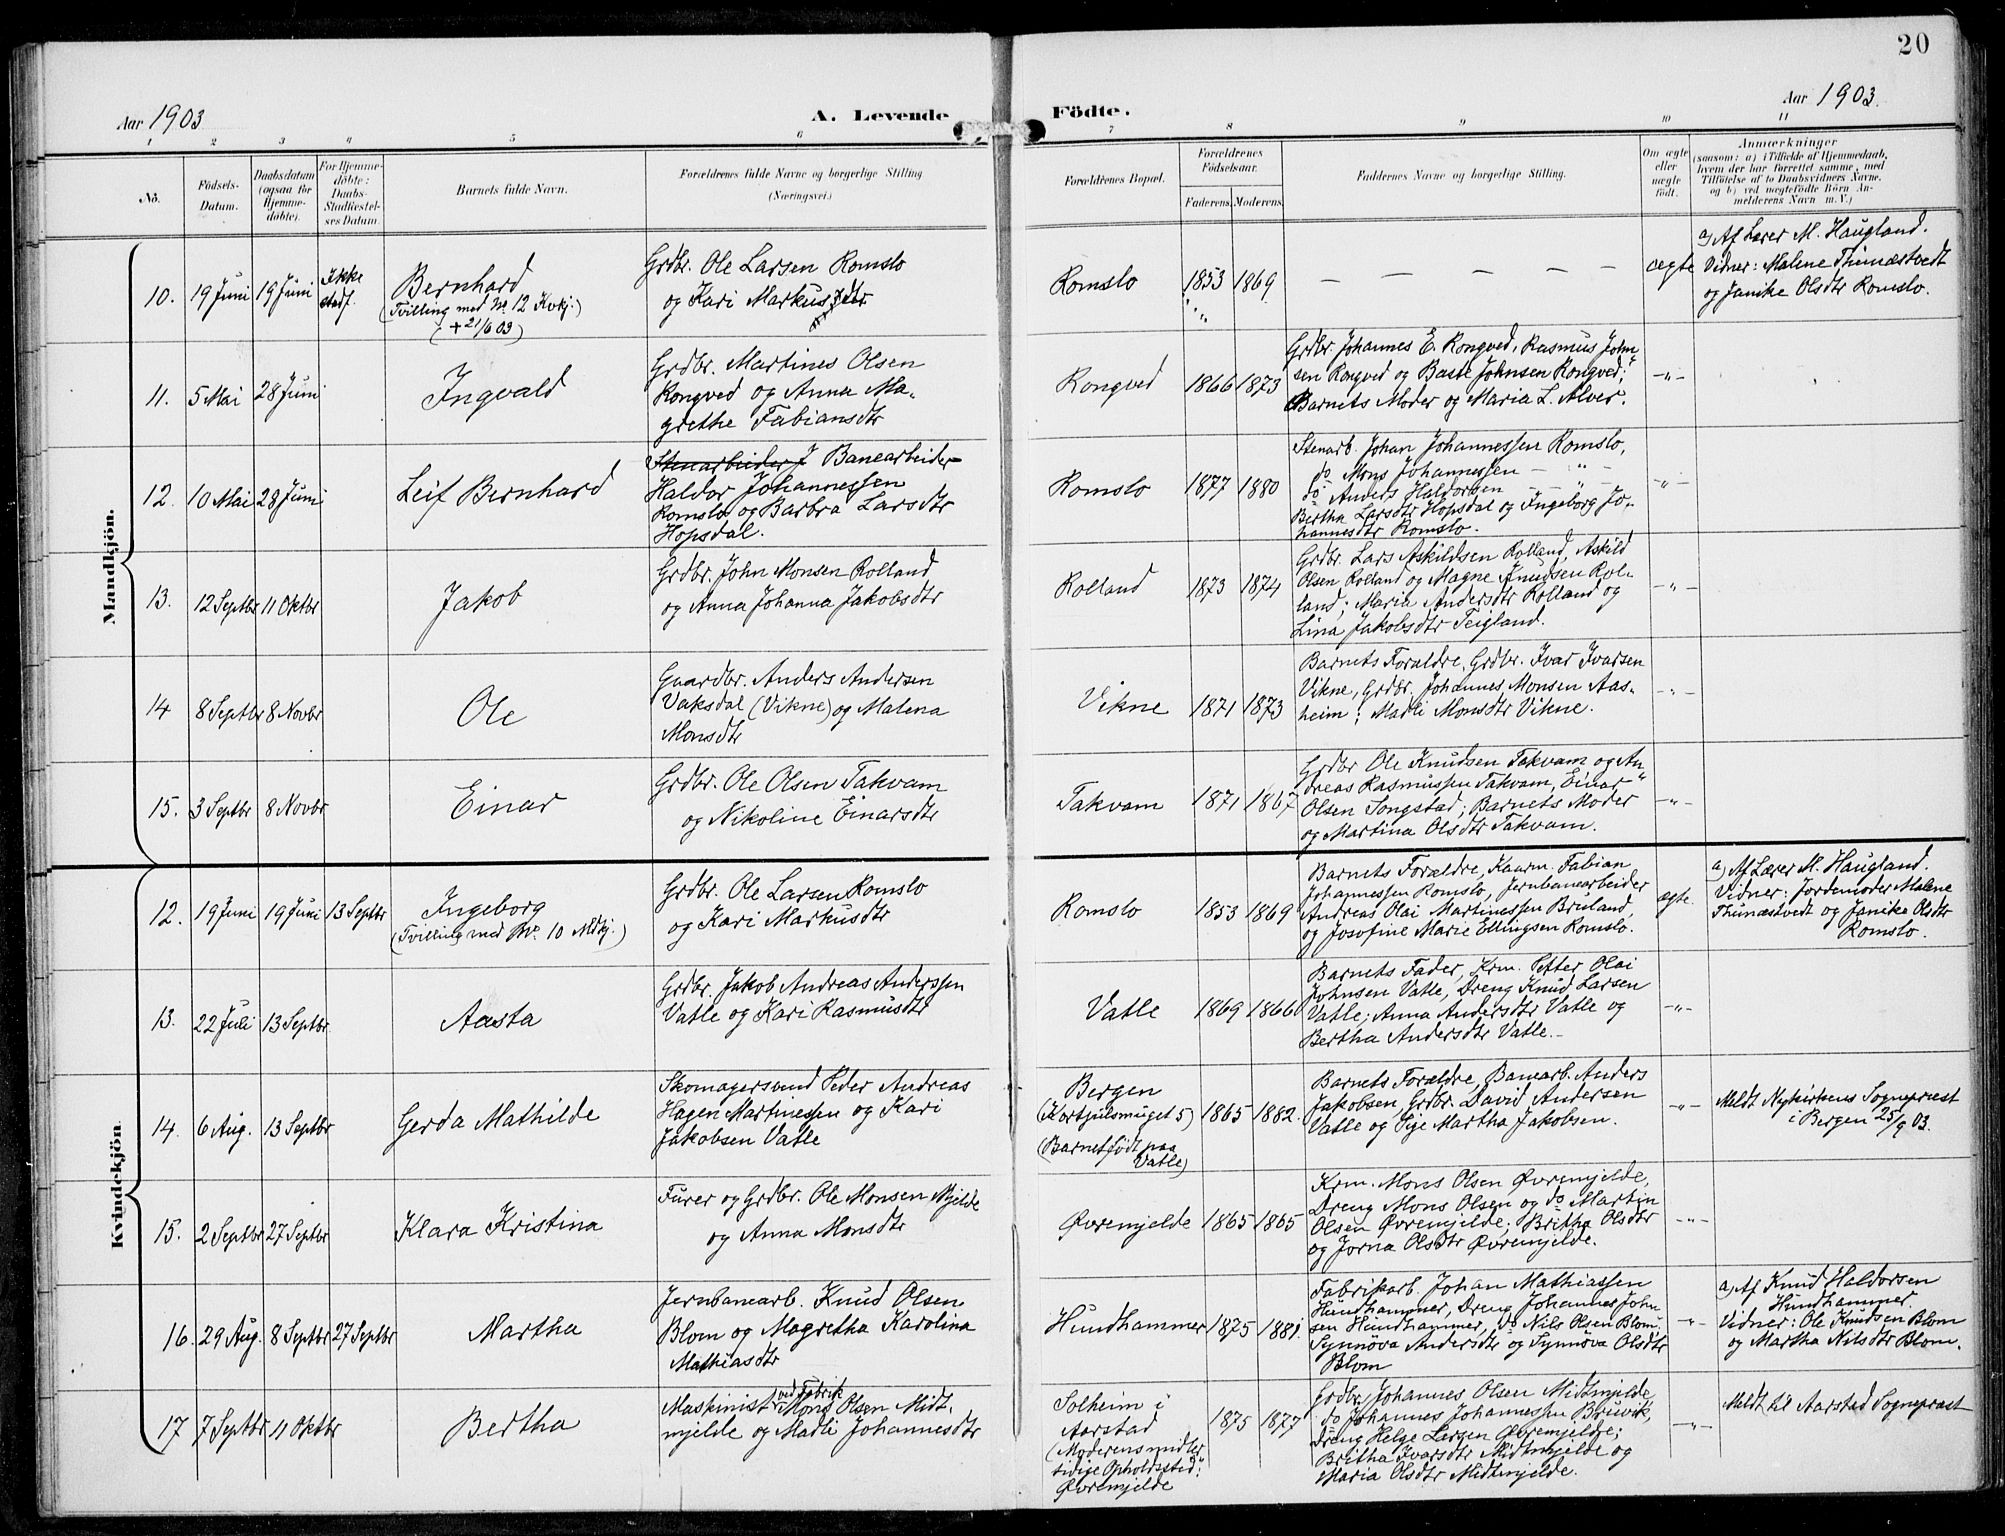 20
Aar 1903
A. Levende
Födte.
Aar 1903.
1 2 3 4 5 6 7 8 9 10 11
No.
Födsels-
Datum.
Daabsdatum
(ogsaa for
Hjemme-
döbte).
For Hjemme-
döbte:
Daabs-
Stadfæstel-
ses Datum.
Barnets fulde Navn.
Forældrenes fulde Navne og borgerlige Stilling
(Næringsvei.)
Forældrenes Bopæl.
Forældrenes
Födselsaar.
Faderens. Moderens.
Faddernes Navne og borgerlige Stilling.
Om ægte
eller
uægte
födt.
Anmærkninger
(saasom: a) i Tilfælde af Hjemmedaab,
hvem der har forrettet samme, med
Tilföielse af to Daabsvidners Navne,
og b) ved uægtefödte Börn An-
melderens Navn m. V.)
Mandkjön.
10. 19 Juni 19 Juni Ikke
stadf.
Bernhard
(Tvilling med No 12 Kvkj.)
(+ 21/6 03)
Grdbr. Ole Larsen Romslo
og Kari Markusdtr
Romslo 1853 1869 — — — — — — ægte
a) Af Lærer M. Haugland.
Vidner: Malene Thunæstvedt
og Janike Olsdtr Romslo.
11. 5 Mai 28 Juni Ingvald
Grdbr. Martines Olsen
Rongved og Anna Ma-
grethe Fabiansdtr
Rongved 1866 1873
Grdbr. Johannes E. Rongved, Rasmus John
sen Rongved og Baste Johnsen Rongved;
Barnets Moder og Maria L. Alver.
-"-
12. 10 Mai 28 Juni Leif Bernhard
Stenarbeider J Banearbeider
Haldor Johannessen
Romslo og Barbra Larsdtr
Hopsdal.
Romslo 1877 1880
Stenarb. Johan Johannessen Romslo,
do Mons Johannessen — " —
do Anders Haldorsen — " —
Bertha Larsdtr Hopsdal og Ingeborg Jo-
hannesdtr Romslo.
-"-
13. 12 Septbr 11 Oktbr Jakob
Grdbr. John Monsen Rolland
og Anna Johanna Jakobsdtr
Rolland 1873 1874
Grdbr. Lars Askildsen Rolland, Askild
Olsen Rolland og Magne Knudsen Rol-
land; Maria Andersdtr Rolland og
Lina Jakobsdtr Teigland.
-"-
14 8 Septbr 8 Novbr Ole
Gaardbr. Anders Andersen
Vaksdal (Vikne) og Malena
Monsdtr
Vikne 1871 1873
Barnets Forældre, Grdbr. Ivar Ivarsen
Vikne, Grdbr. Johannes Monsen Aas-
heim; Madli Monsdtr Vikne.
-"-
15. 3 Septbr 8 Novbr Einar
Grdbr. Ole Olsen Takvam
og Nikoline Einarsdtr
Takvam 1871 1867
Grdbr Ole Knudsen Takvam og An-
dreas Rasmussen Takvam, Einar
Olsen Songstad; Barnets Moder
og Martina Olsdtr Takvam.
-"-
Kvindekjön.
12. 19 Juni 19 Juni 13 Septbr
Ingeborg
(Tvilling med No. 10 Mdkj.)
Grdbr. Ole Larsen Romslo
og Kari Markusdtr
Romslo 1853 1869
Barnets Forældre, Kaarm. Fabian
Johannessen Romslo, Jernbanearbeider
Andreas Olai Martinessen Bruland,
og Josofine Marie Ellingsen Romslo.
ægte.
a) Af Lærer M. Haugland.
Vidner: Jordemoder Malene
Thunæstvedt og Janike Olsdtr
Romslo.
13. 22 Juli 13 Septbr Aasta
Grdbr. Jakob Andreas Anderssen
Vatle og Kari Rasmusdtr
Vatle 1869 1866
Barnets Fader, Krm. Petter Olai
Johnsen Vatle, Dreng Knud Larsen
Vatle; Anna Andersdtr Vatle og
Bertha Andersdtr Vatle.
-"-
14. 6 Aug. 13 Septbr Gerda Mathilde
Skomagersvend Peder Andreas
Hagen Martinessen og Kari
Jakobsen Vatle
Bergen
(Kortgilsmuget 5)
(Barnet født paa
Vatle)
1865 1882.
Barnets Forældre, Banearb. Anders
Jakobsen, Grdbr. David Andersen
Vatle og Pige Martha Jakobsen.
-"-
Meldt Nykirkens Sogneprest
i Bergen 25/9 03.
15. 2 Septbr 27 Septbr Klara Kristina
Furer og Grdbr. Ole Monsen Mjelde
og Anna Monsdtr
Øvremjelde 1865 1865
Krm. Mons Olsen Øvremjelde,
Dreng Mons Olsen og do Martin
Olsen Øvremjelde; Britha Olsdtr
og Jorna Olsdtr Øvremjelde.
-"-
16. 29 Aug. 8 Septbr 27 Septbr Martha
Jernbanearb. Knud Olsen
Blom og Magretha Karolina
Mathiasdtr
Hundhammer 1875 1881.
Fabrikarb. Johan Mathiassen
Hundhammer, Dreng Johannes John-
sen Hundhammer, do Nils Olsen Blom.
Synnøva Andersdtr og Synnøva Olsdtr
Blom
-"-
a) Af Knud Haldorsen
Hundhammer.
Vidner: Ole Knudsen Blom
og Martha Nilsdtr Blom.
17 7 Septbr 11 Oktbr Bertha
Maskinist ved Fabrik Mons Olsen Midt-
mjelde og Madli Johannesdtr
Solheim i
Aarstad
(Moderens midler-
tidige Opholdssted:
Øvremjelde
1875 1877
Grdbr. Johannes Olsen Midtmjelde,
do Johannes Johannessen Bruvik,
Dreng Helge Larsen Øvremjelde;
Britha Ivarsdtr Midtmjelde og
Maria Olsdtr Midtmjelde.
-"-
Meldt til Aarstad Sogneprest